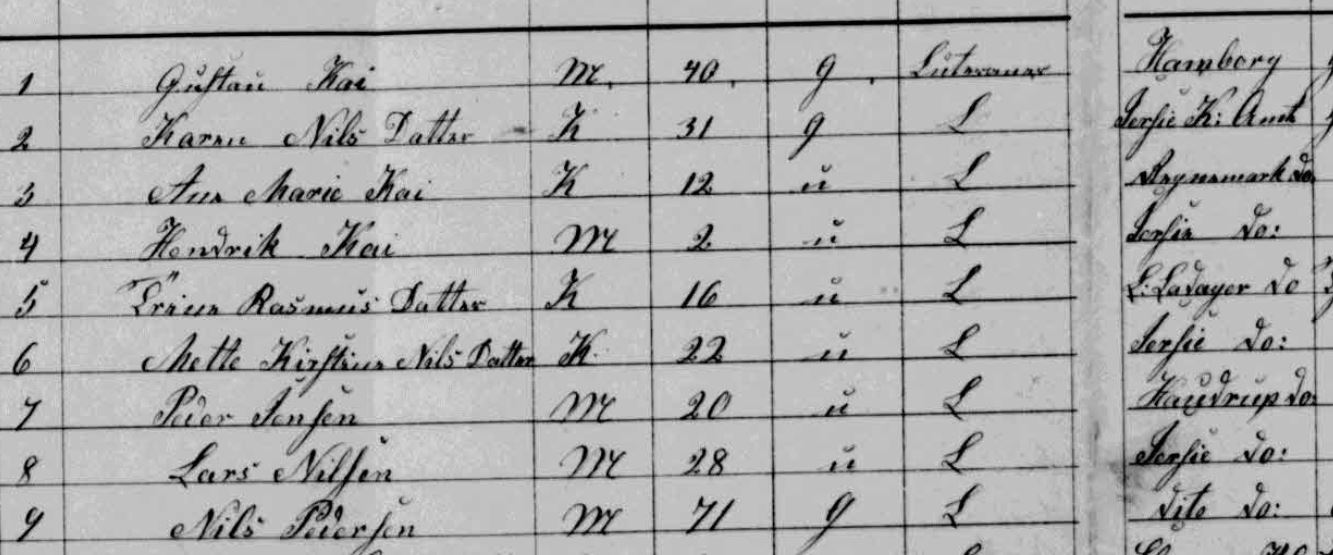 1 Gustau Kai M. 40. g. Luteraner Hamborg
2 Karen Nils Datter K 31 g L Jersie K: Amt
3 Ane Marie Kai K 12 u L Regnemark do
4 Hendrik Kai M 2 u L Jersie do:
5 Trine Rasmus Datter K 16 u L L: Ladager do
6 Mette Kirstine Nils Datter K. 22 u L Jersie do:
7 Peder Jensen M 20 u L Haudrup do:
8 Lars Nilsen M 28 u L Jersie do:
9 Nils Pedersen M 71 g L dito do: